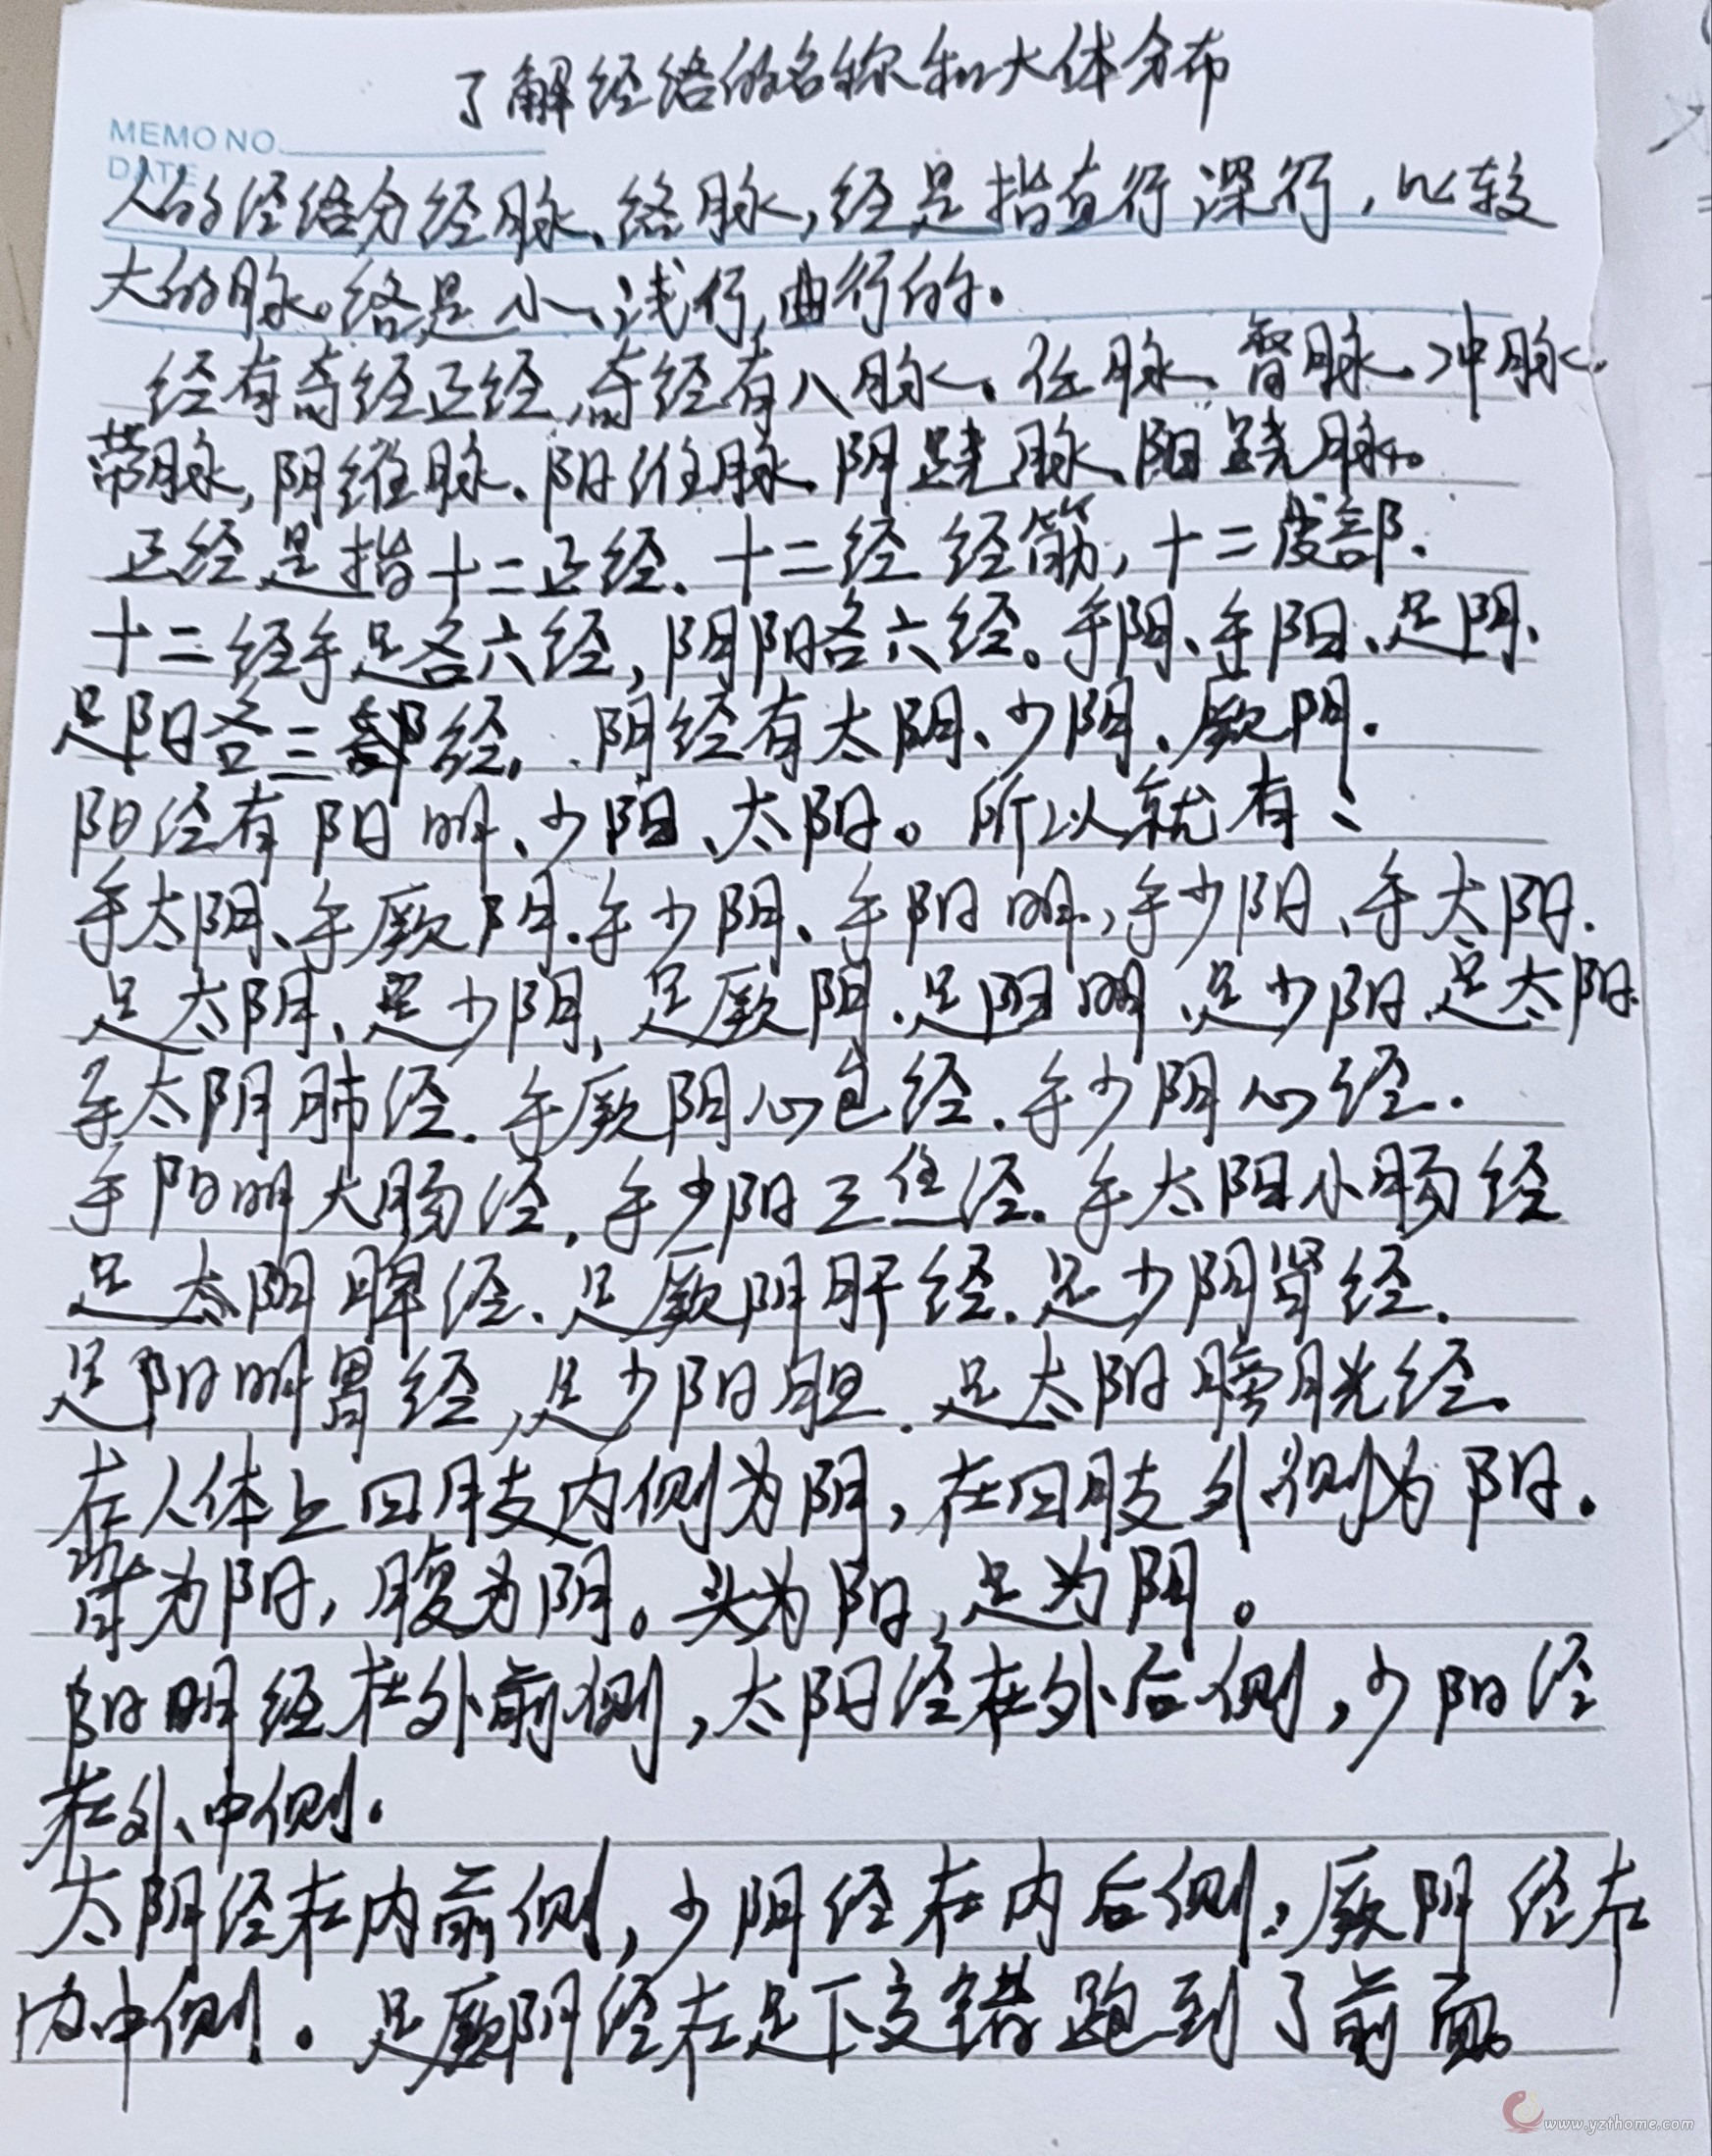 了解经络的名称和大体分布
MEMO NO.
DATE
人的经络分经脉、络脉,经是指直行深行,比较
大的脉。络是小、浅行,曲行的。
经有奇经正经,奇经有八脉、任脉、督脉、冲脉、
带脉,阴维脉、阳维脉、阴跷脉、阳跷脉。
正经是指十二正经、十二经经筋,十二皮部.
十二经手足各六经,阴阳各六经。手阴、手阳、足阴、
足阳各三部经。.阴经有太阴、少阴、厥阴.
阳经有阳明、少阳、太阳。所以就有:
手太阴、手厥阴.手少阴、手阳明、手少阳、手太阳.
足太阴、足少阴,足厥阴.足阳明、足少阳.足太阳.
手太阴肺经.手厥阴心包经.手少阴心经.
手阳明大肠经,手少阳三焦经.手太阳小肠经
足太阴脾经.足厥阴肝经.足少阴肾经.
足阳明胃经,足少阳胆.足太阳膀胱经.
在人体上四肢内侧为阴,在四肢外侧为阳.
背为阳,腹为阴。头为阳,足为阴。
阳明经在外前侧,太阳经在外后侧,少阳经
在外中侧.
太阴经在内前侧,少阴经在内后侧,厥阴经在
内中侧.足厥阴经在足下交错跑到了前面。
www.yzthome.com